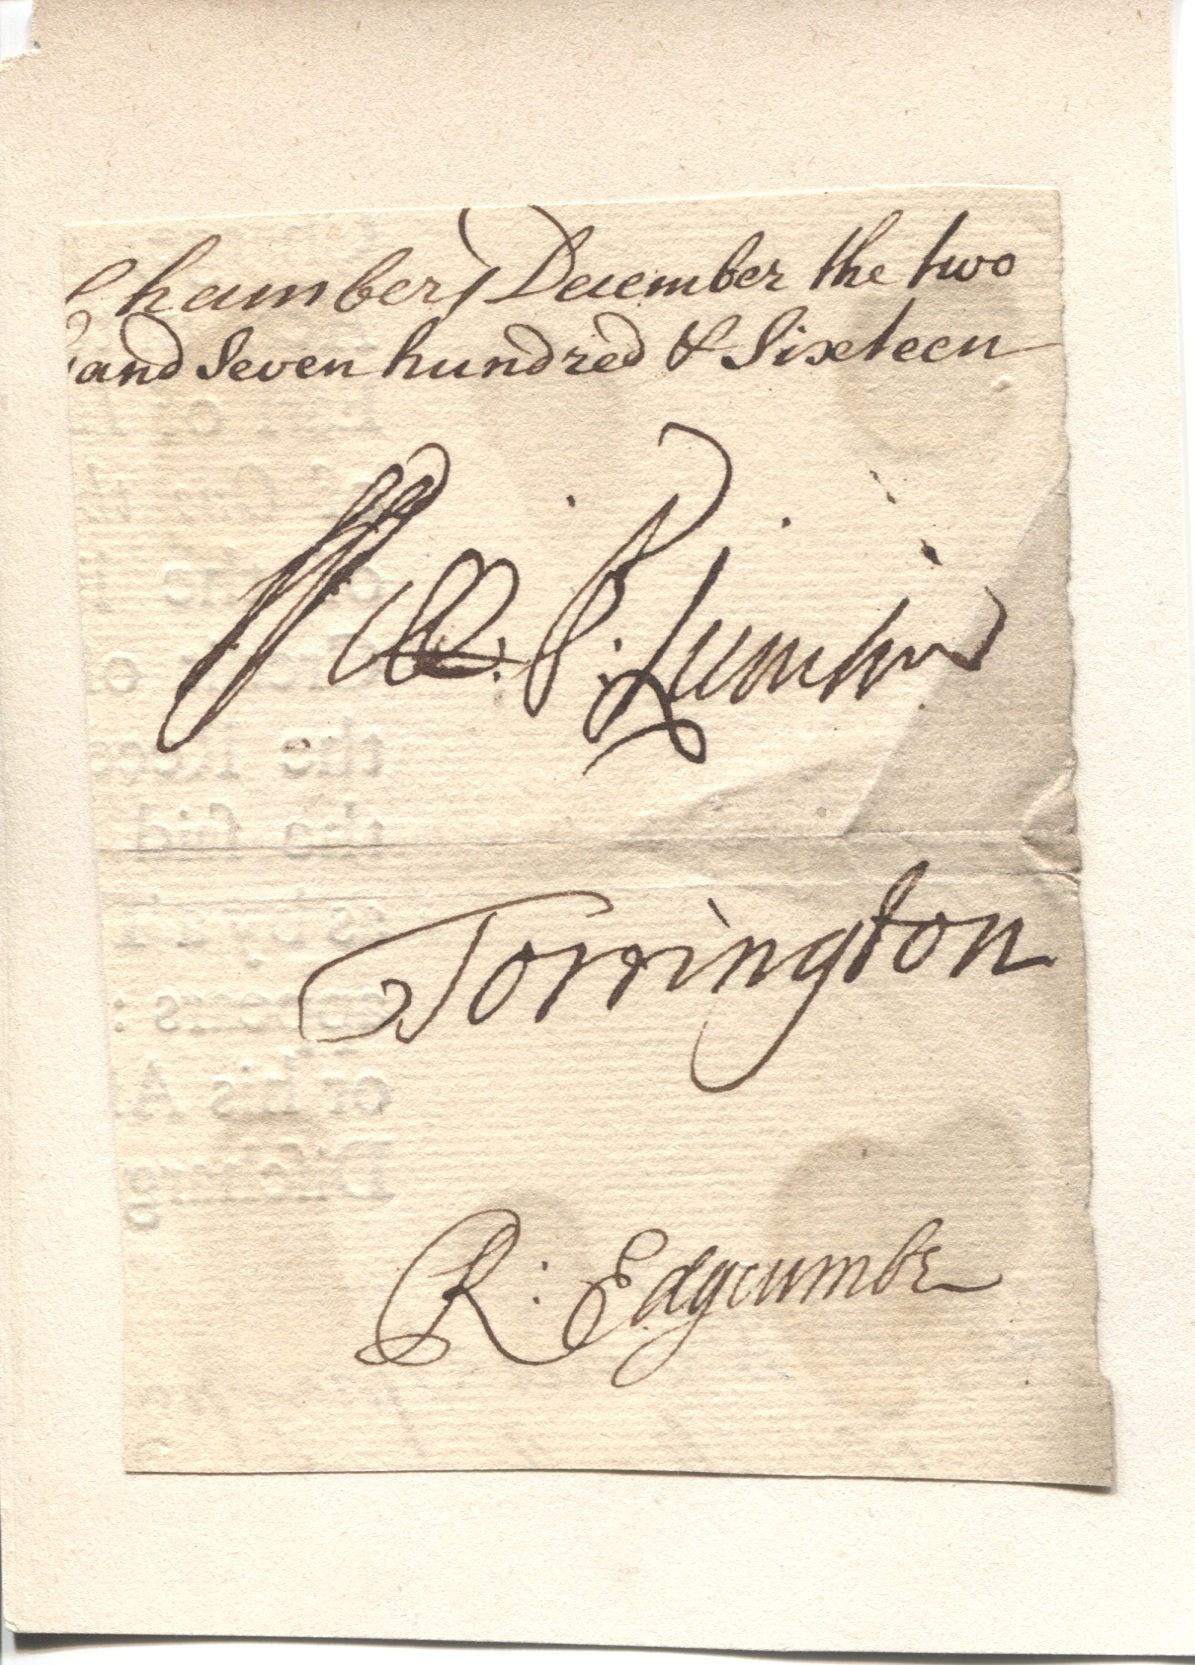 Chambers December the two
and Seven hundred & Sixteen
Will. St. Quintin
Torrington
R: Edgcumbe